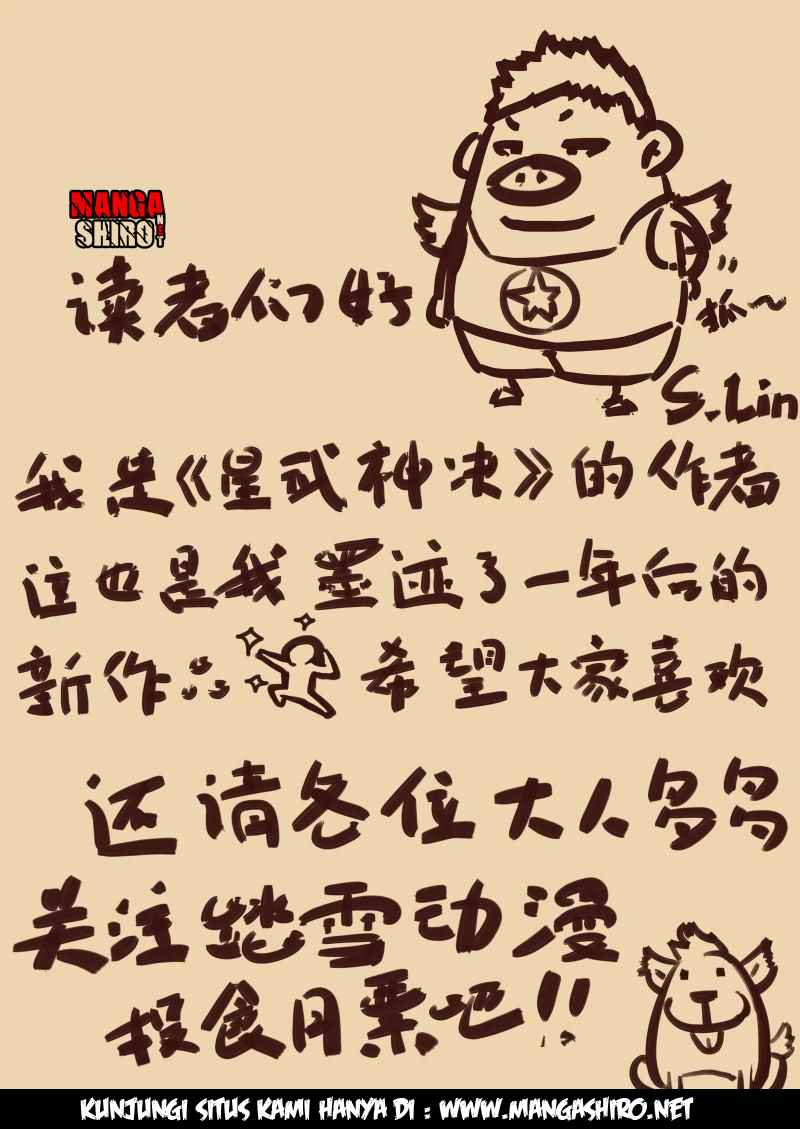 MANGA
SHIRO.NET
读者们好
狐～
S.Lin
我是《星武神决》的作者
这也是我墨迹了一年后的
新作 希望大家喜欢
还请各位大人多多
关注踏雪动漫
投食月票吧!!
KUNJUNGI SITUS KAMI HANYA DI : WWW.MANGASHIRO.NET